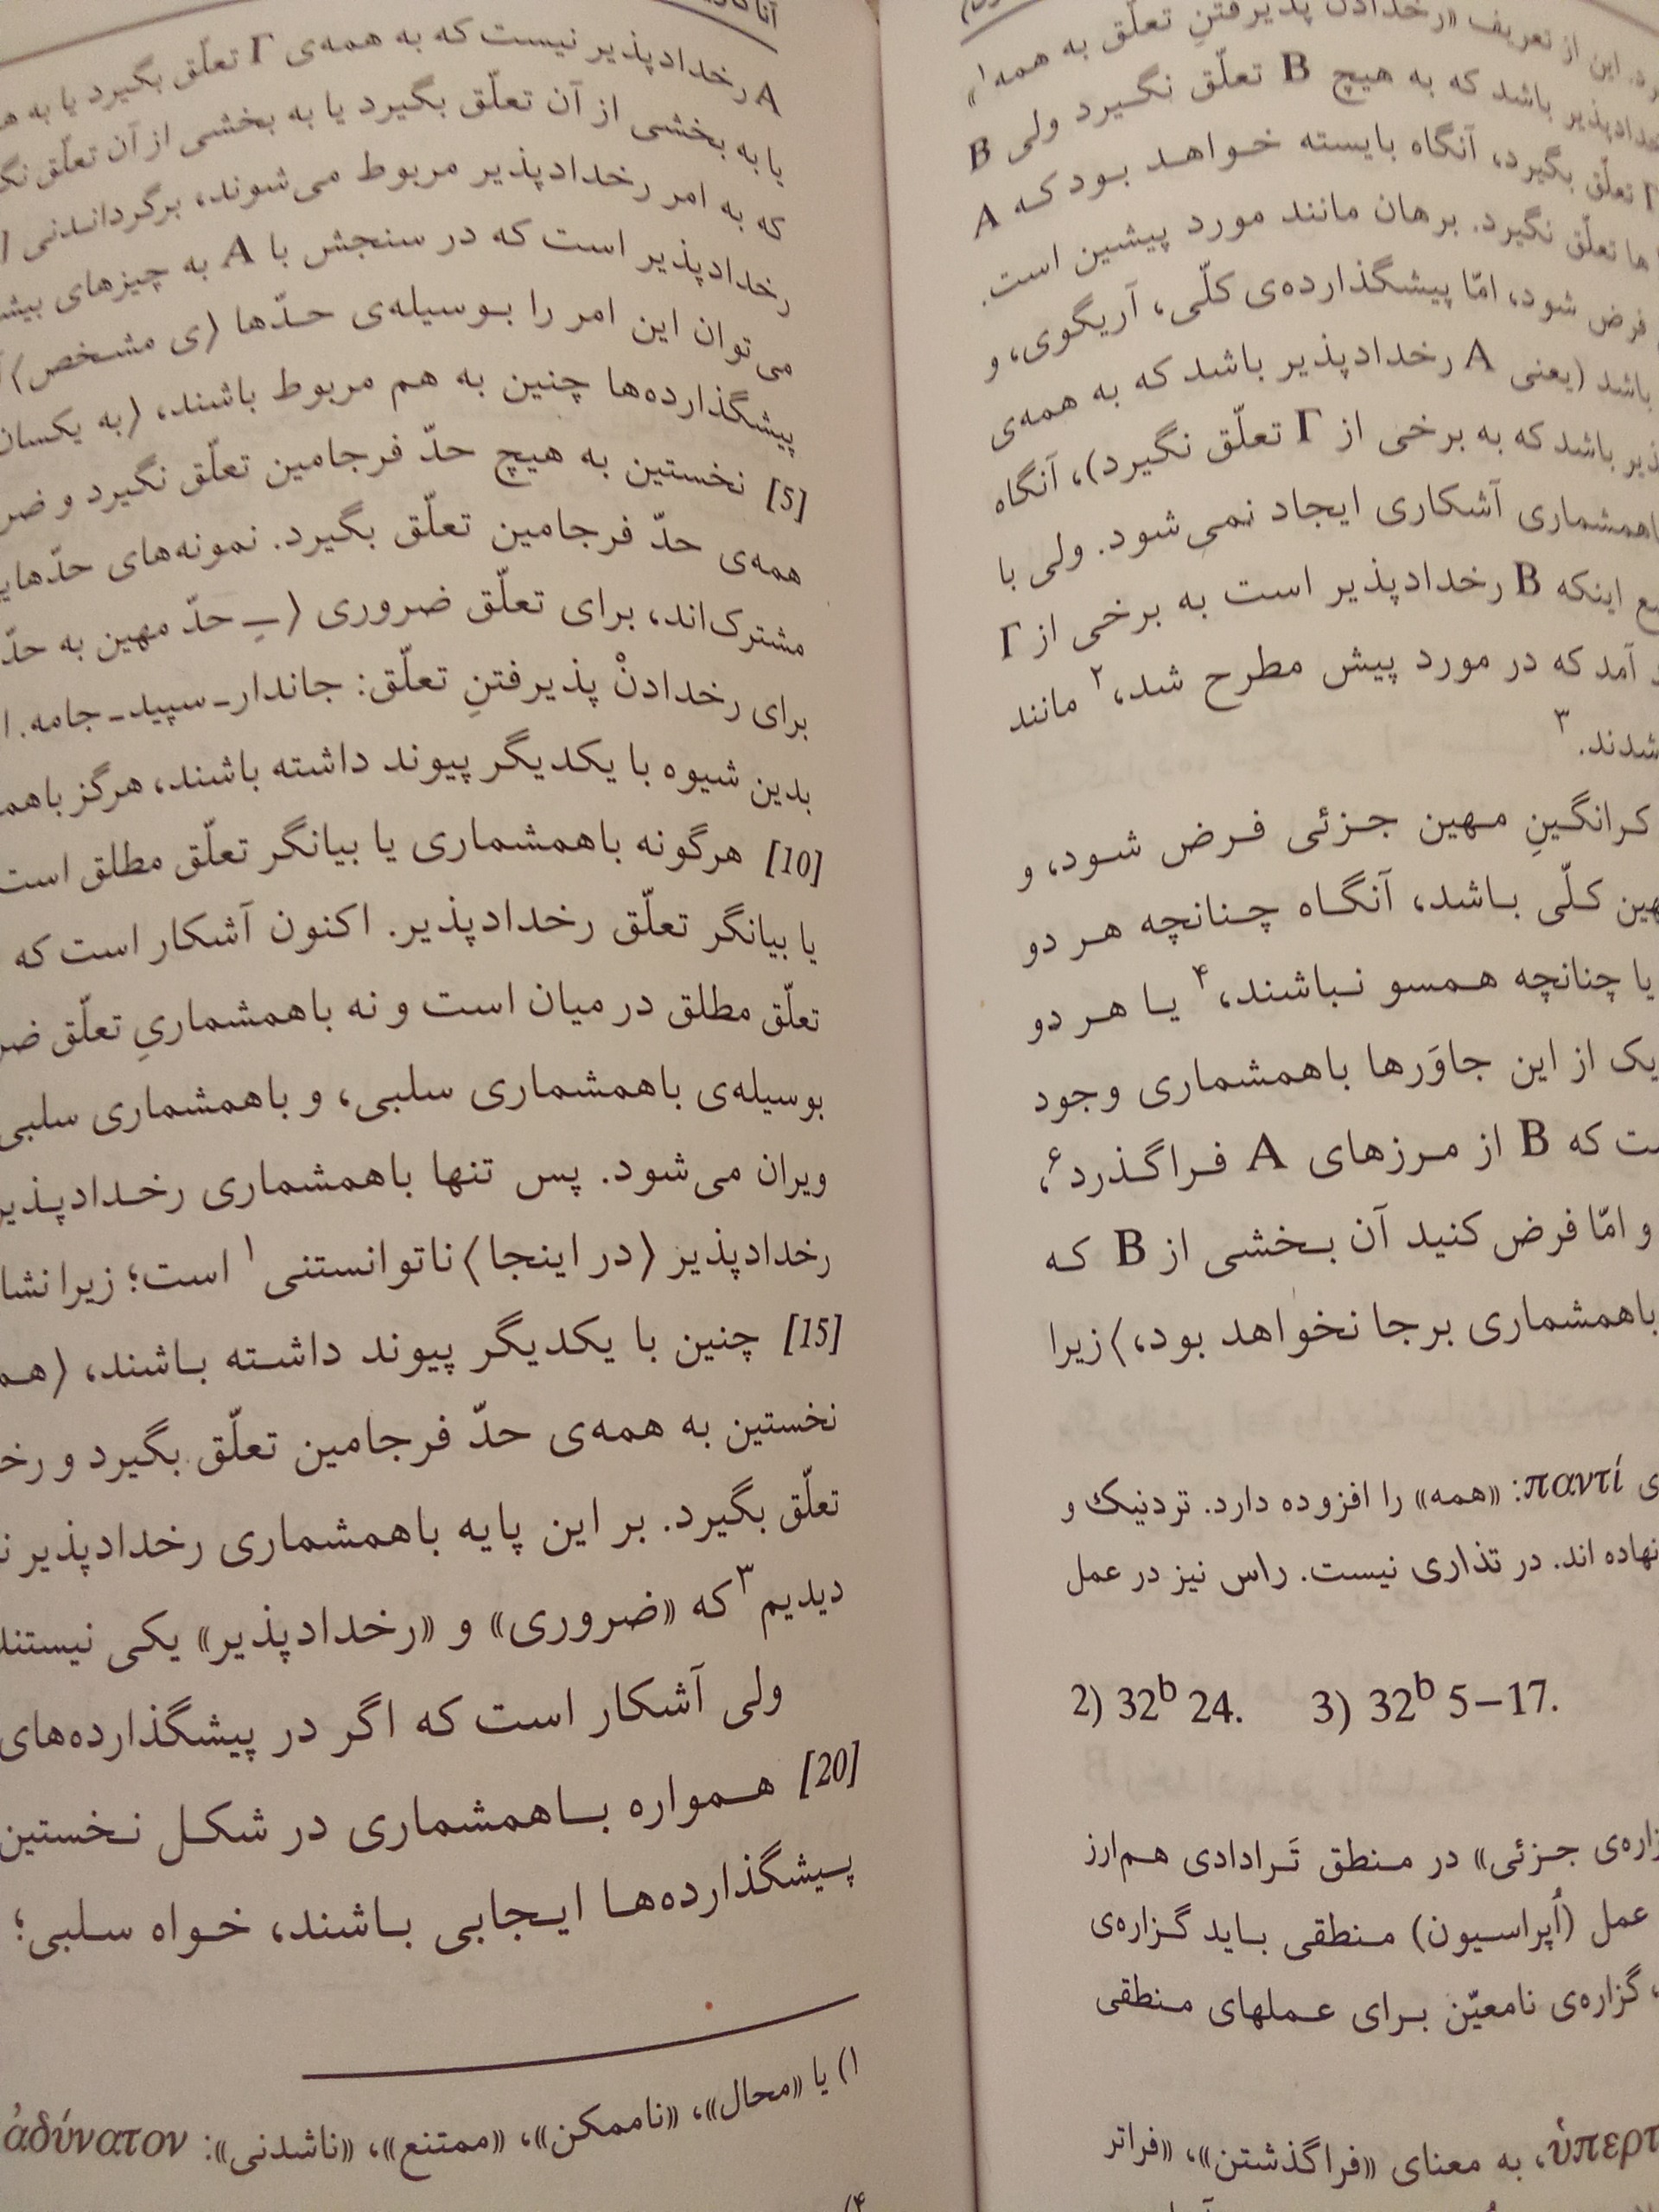 رد. این از تعریف «رخدادن پذیرفتنِ تعلّق به همه»۱
خدادپذیر باشد که به هیچ B تعلّق نگیرد ولی B
Γ تعلّق بگیرد، آنگاه بایسته خواهد بود که A
ها تعلّق نگیرد. برهان مانند مورد پیشین است.
فرض شود، امّا پیشگذارده‌ی کلّی، آریگوی، و
باشد (یعنی A رخدادپذیر باشد که به همه‌ی
ذیر باشد که به برخی از Γ تعلّق نگیرد)، آنگاه
باهمشماری آشکاری ایجاد نمی‌شود. ولی با
ع اینکه B رخدادپذیر است به برخی از Γ
آمد که در مورد پیش مطرح شد،۲ مانند
شدند.۳
کرانگینِ مهین جزئی فرض شود، و
هین کلّی باشد، آنگاه چنانچه هر دو
یا چنانچه همسو نباشند،۴ یا هر دو
یک از این جاوَرها باهمشماری وجود
ست که B از مرزهای A فراگذرد۶،
و امّا فرض کنید آن بخشی از B که
باهمشماری برجا نخواهد بود،⟩ زیرا
ی παντί: «همه» را افزوده دارد. تردنیک و
نهاده اند. در تذاری نیست. راس نیز در عمل
2) 32b 24. 3) 32b 5–17.
زاره‌ی جزئی» در منطق تَرادادی هم‌ارز
عمل (اُپراسیون) منطقی باید گزاره‌ی
، گزاره‌ی نامعیّن برای عملهای منطقی
ὑπερτ، به معنای «فراگذشتن»، «فراتر
A رخدادپذیر نیست که به همه‌ی Γ تعلّق بگیرد یا به ه
یا به بخشی از آن تعلّق بگیرد یا به بخشی از آن تعلّق نگ
که به امر رخدادپذیر مربوط می‌شوند، برگرداندنی
رخدادپذیر است که در سنجش با A به چیزهای بیش
می‌توان این امر را بوسیله‌ی حدّها ⟨ی مشخص⟩
پیشگذارده‌ها چنین به هم مربوط باشند، ⟨به یکسان
[5] نخستین به هیچ حدّ فرجامین تعلّق نگیرد و ضر
همه‌ی حدّ فرجامین تعلّق بگیرد. نمونه‌های حدّهایـ
مشترک‌اند، برای تعلّق ضروری ⟨ـِ حدّ مهین به حدّ
برای رخدادنْ پذیرفتنِ تعلّق: جاندار ـ سپید ـ جامه. ا
بدین شیوه با یکدیگر پیوند داشته باشند، هرگز باهمـ
[10] هرگونه باهمشماری یا بیانگر تعلّق مطلق است
یا بیانگر تعلّق رخدادپذیر. اکنون آشکار است که
تعلّق مطلق در میان است و نه باهمشماریِ تعلّق ضر
بوسیله‌ی باهمشماری سلبی، و باهمشماری سلبی
ویران می‌شود. پس تنها باهمشماری رخدادپذیر
رخدادپذیر ⟨در اینجا⟩ ناتوانستنی۱ است؛ زیرا نشا
[15] چنین با یکدیگر پیوند داشته باشند، ⟨هم
نخستین به همه‌ی حدّ فرجامین تعلّق بگیرد و رخـ
تعلّق بگیرد. بر این پایه باهمشماری رخدادپذیر نـ
دیدیم۳ که «ضروری» و «رخدادپذیر» یکی نیستند
ولی آشکار است که اگر در پیشگذارده‌های
[20] همواره باهمشماری در شکل نخستین
پیشگذارده‌ها ایجابی باشند، خواه سلبی؛
۱) یا «محال»، «ناممکن»، «ممتنع»، «ناشدنی»: ἀδύνατον